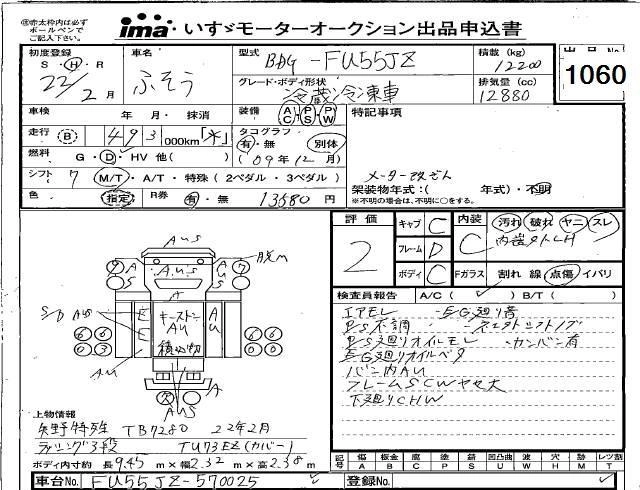 ㊟赤太枠内は必ず
ボールペンで
ご記入下さい。
ima いすゞモーターオークション出品申込書
初度登録 車名 型式 BDG-FU55JZ 積載(kg) 12200 出品No.
S・H・R 22/2月 ふそう グレード・ボディ形状 冷蔵冷凍車 排気量(cc) 12880 1060
車検 年・月・抹消 装備 AC PS PW 特記事項
走行 B 493 000km「*」 タコグラフ 有・無 別体
燃料 G・D・HV 他( ) (09年12月)
シフト 7 M/T・A/T・特殊(2ペダル・3ペダル) メーター改ざん
架装物年式:( 年式)・不明
色 指定 R券 有・無 13580円 ※不明の場合は、不明に○をする。
評価 2 キャブ C 内装 C 汚れ 破れ ヤニ スレ
フレーム D
ボディ C Fガラス 割れ 線 点傷 イバリ
検査員報告 A/C( ✓ ) B/T( )
EG廻り音
P/S不調
P/S廻りオイルモレ ・カンバン有
EG廻りオイルベタ
バン内AU
フレームSCWヤセ大
下廻りCHW
AUS
AUS
A
AU
キーストン
AU
積込切
AU
AUS
上物情報
矢野特殊 TB7280 22年2月
ラッシング3段 TU73EZ(カバー)
ボディ内寸 約長9.45m×幅2.32m×高2.38m
記号 傷A 板金B 腐C 塗P 錆S 凹凸曲U 波W 穴H 跡M レンズ割T
車台No. FU55JZ-570025 登録No.